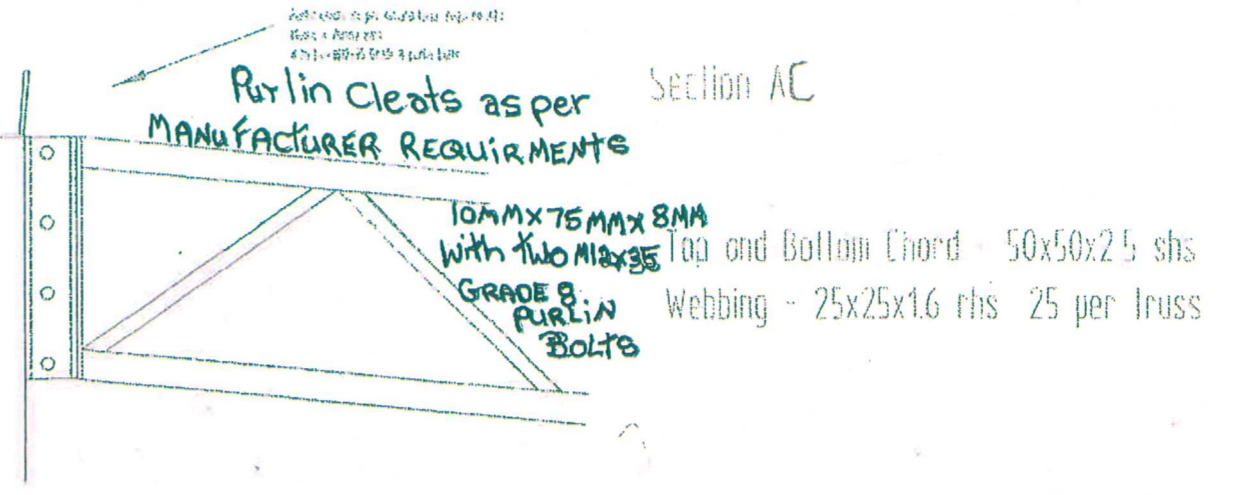 Purlin Cleats as per
MANUFACTURER REQUIRMENTS
Section AC
10MMX75MMX8MM
with two M12x35
GRADE 8
PURLIN
BOLTS
Top and Bottom Chord - 50x50x2.5 shs
Webbing - 25x25x1.6 rhs 25 per truss